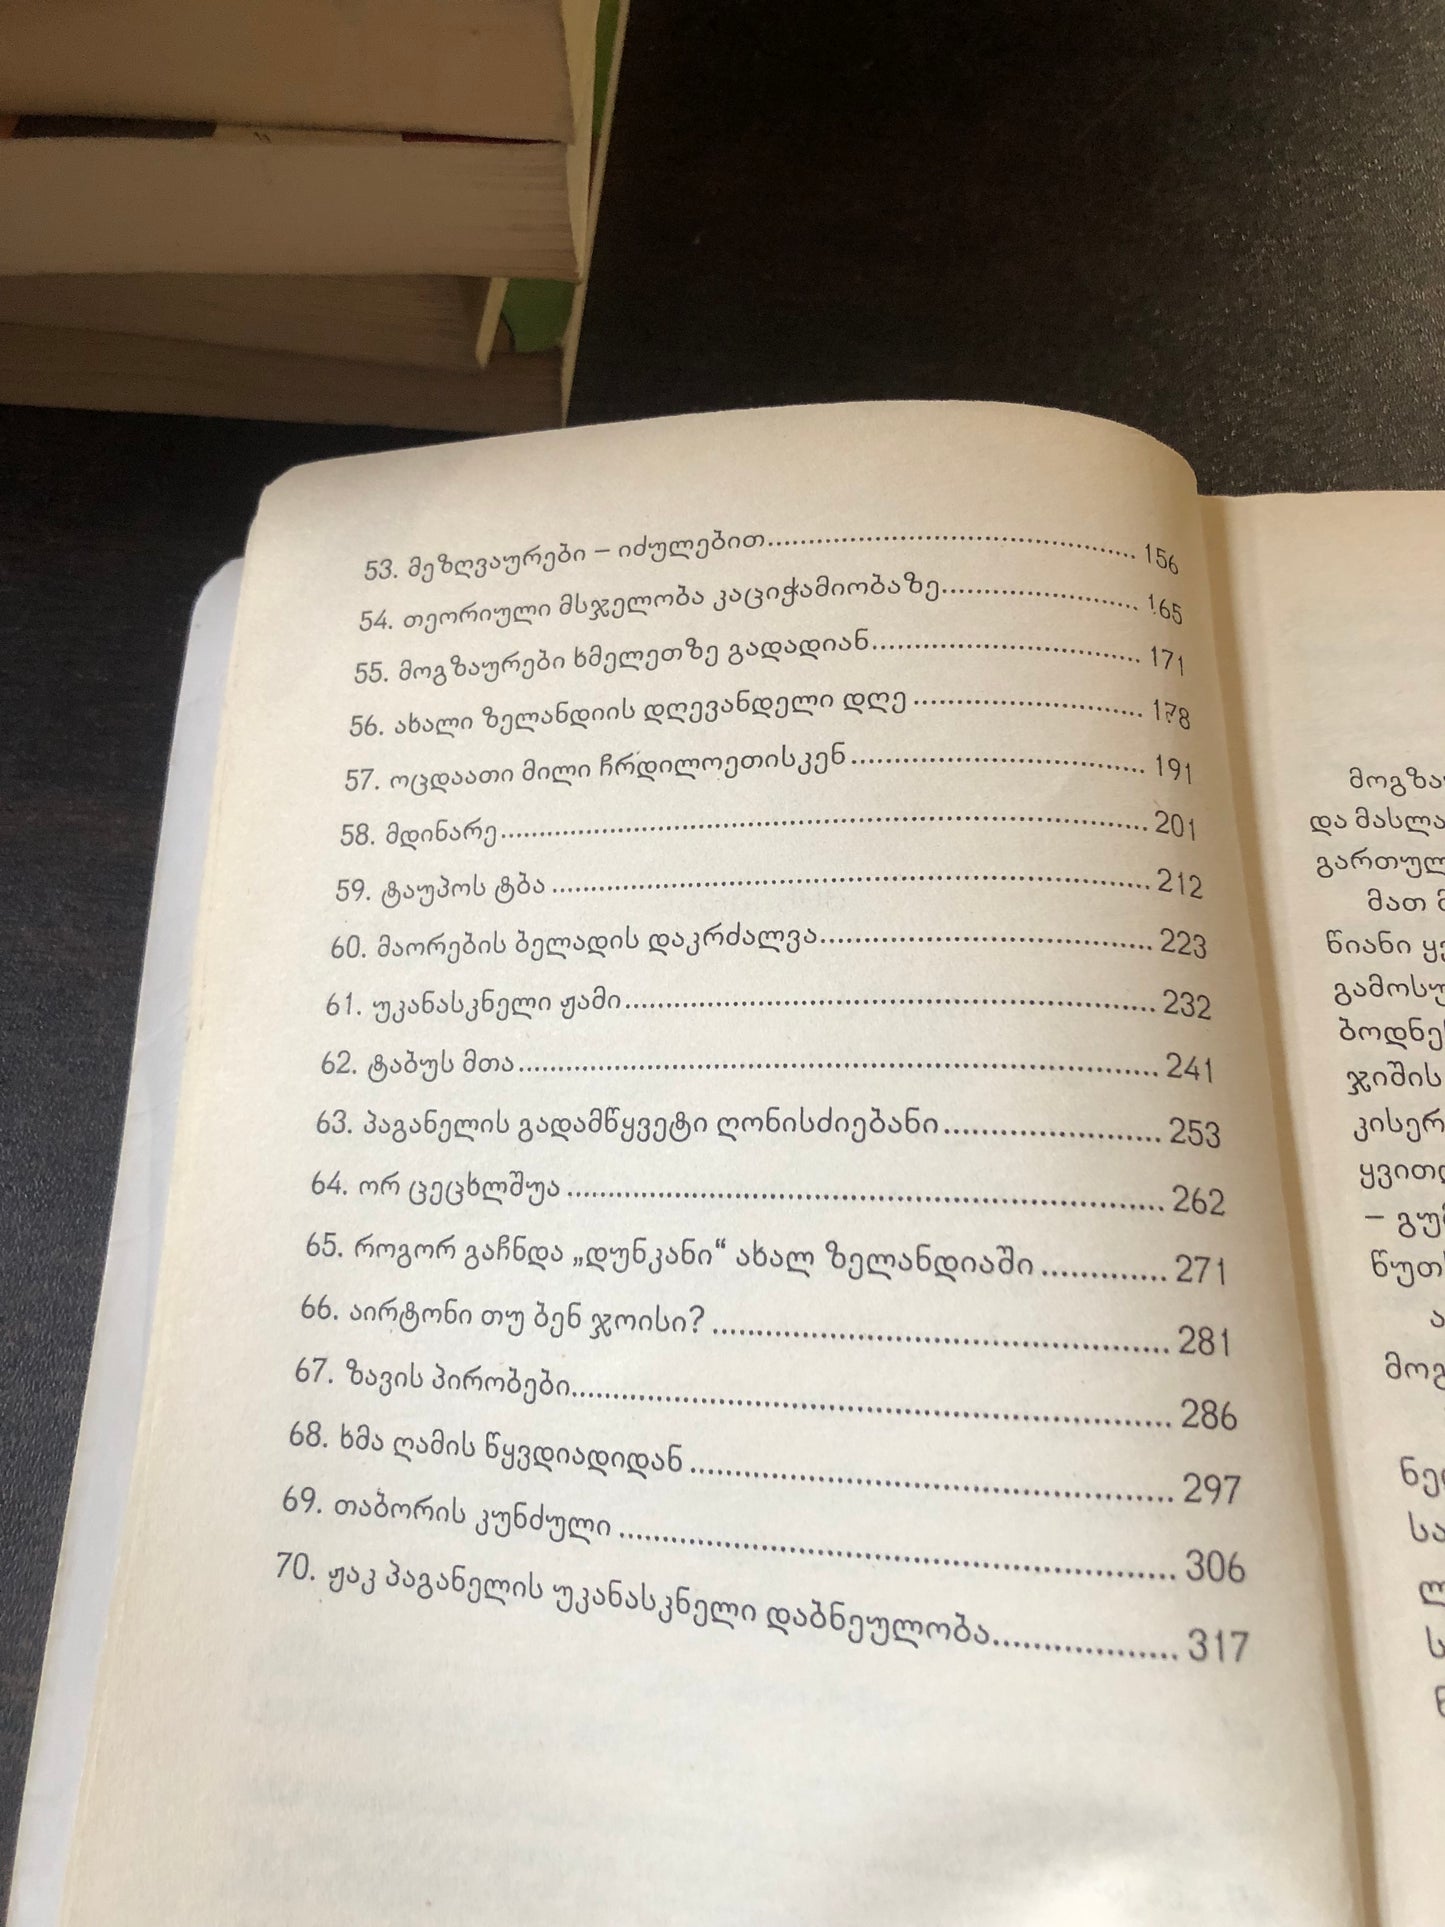 53. მეზღვაურები – იძულებით........................................ 156
54. თეორიული მსჯელობა კაციჭამიობაზე..................... 165
55. მოგზაურები ხმელეთზე გადადიან............................. 171
56. ახალი ზელანდიის დღევანდელი დღე ......................... 178
57. ოცდაათი მილი ჩრდილოეთისკენ................................ 191
58. მდინარე........................................................................ 201
59. ტაუპოს ტბა ................................................................. 212
60. მაორების ბელადის დაკრძალვა.................................... 223
61. უკანასკნელი ჟამი......................................................... 232
62. ტაბუს მთა.................................................................... 241
63. პაგანელის გადამწყვეტი ღონისძიებანი....................... 253
64. ორ ცეცხლშუა .............................................................. 262
65. როგორ გაჩნდა „დუნკანი“ ახალ ზელანდიაში ............. 271
66. აირტონი თუ ბენ ჯოისი? .............................................. 281
67. ზავის პირობები............................................................ 286
68. ხმა ღამის წყვდიადიდან ................................................ 297
69. თაბორის კუნძული ....................................................... 306
70. ჟაკ პაგანელის უკანასკნელი დაბნეულობა................... 317
და
მათ
წიანი
–